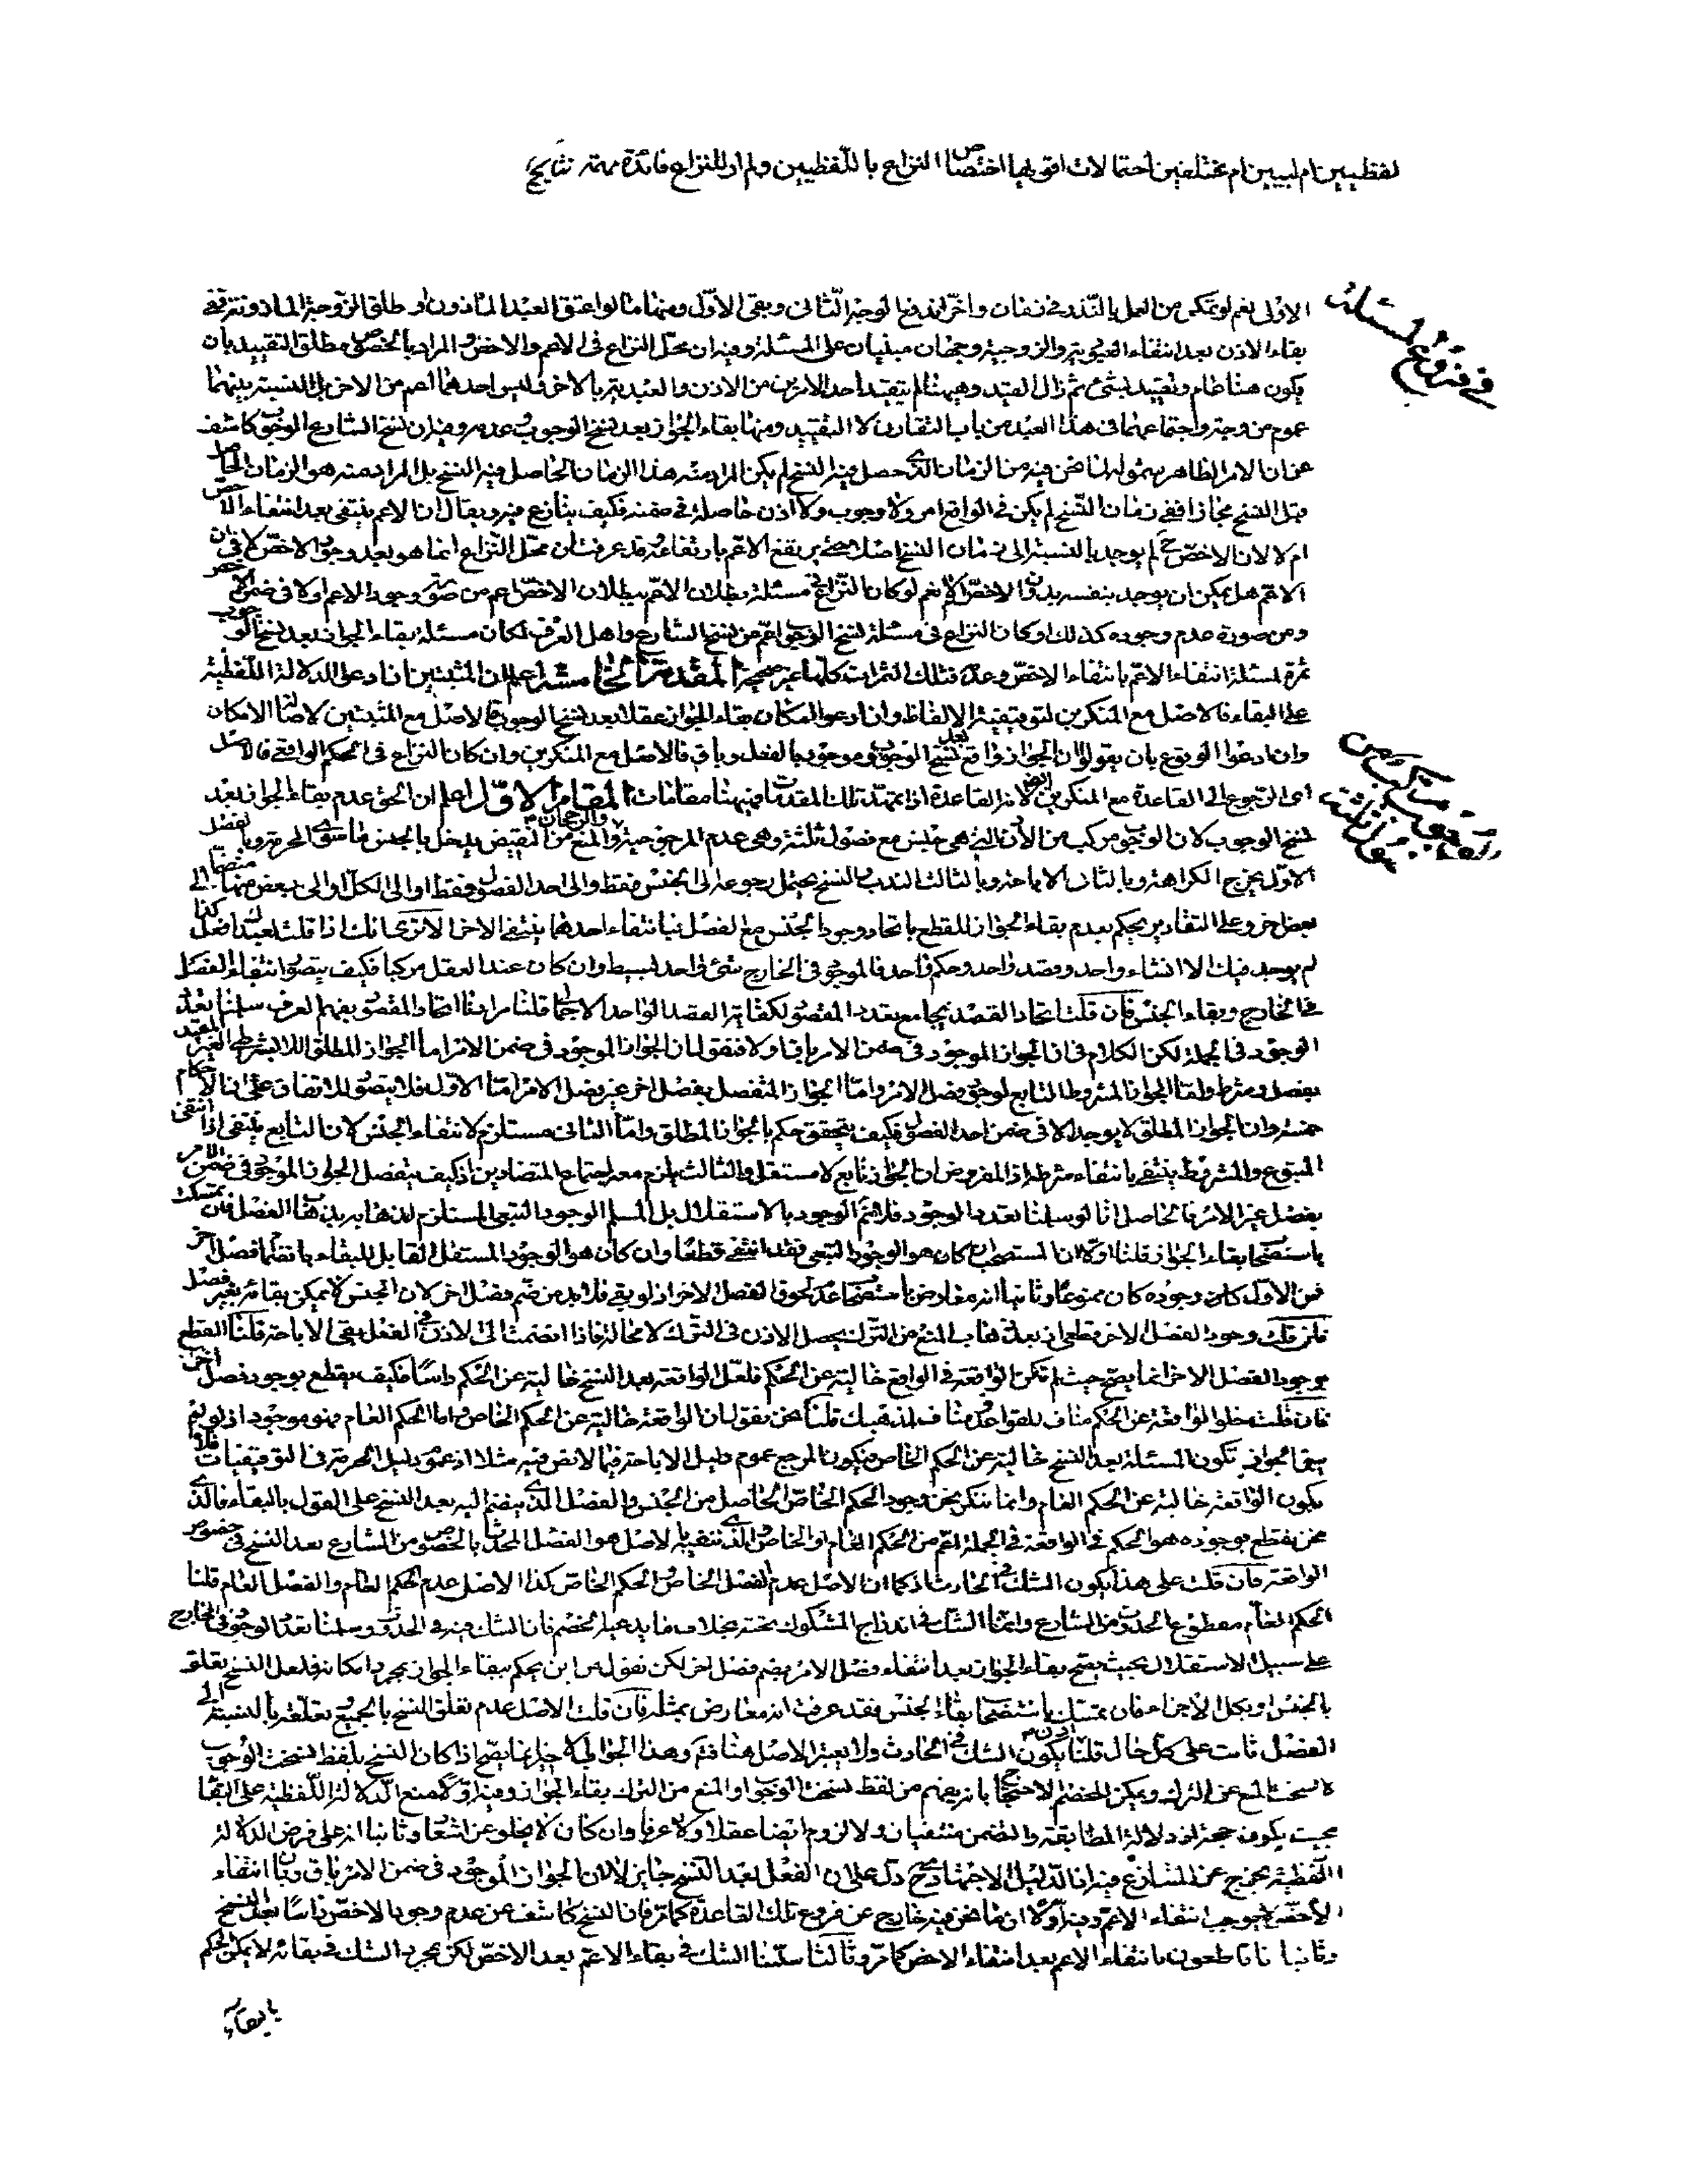 لفظيين ام لبيين ام مختلفين احتمالات اقويها اختصاص النزاع باللفظيين ولم ار للنزاع فائدة مهمة نتايج
في فروع المسئلة
الاولى نعم لو تمكن من العمل بالنذر في زمان واخر اندفع الوجه الثانى وبقى الاول ومنها ما لو اعتق العبد الماذون او طلق الزوجة الماذونة ففى
بقاء الاذن بعد انتفاء العبودية والزوجية وجهان مبنيان على المسئلة وفيه ان محل النزاع فى الاعم والاخص والمراد بالخصوص مطلق التقييد بان
يكون هنا عام وتقييد بشئ ثم زال القيد وهيهنا لم يتقيد احد الامرين من الاذن والعبدية بالاخر وليس احدهما اعم من الاخر بل النسبة بينهما
عموم من وجه واجتماعهما فى هذا العبد من باب التقارن لا التقييد ومنها بقاء الجواز بعد نسخ الوجوب وعدمه وفيه ان نسخ الشارع الوجوب كاشف
عن ان الامر الظاهر بعمومه لما نحن فيه من الزمان الذى حصل فيه النسخ لم يكن المراد منه هذا الزمان الحاصل فيه النسخ بل المراد منه هو الزمان الحاصل
قبل النسخ مجازا ففى زمان النسخ لم يكن فى الواقع امر ولا وجوب ولا اذن حاصلة فى ضمنه فكيف ينازع فيه ويقال ان الاعم ينتفى بعد انتفاء الاخص
ام لا لان الاخص ح لم يوجد بالنسبة الى زمان النسخ اصلا حتى يرتفع الاعم بارتفاعه وقد عرفت ان محل النزاع انما هو بعد وجود الاخص لا فى ان
الاعم هل يمكن ان يوجد بنفسه بدون الاخص ام لا نعم لو كان النزاع فى مسئلة بطلان الاعم ببطلان الاخص اعم من صورة وجود الاعم اولا فى ضمن الاخص
ومن صورة عدم وجوده كذلك او كان النزاع فى مسئلة نسخ الوجوب اعم من نسخ الشارع واهل العرف لكان مسئلة بقاء الجواز بعد نسخ الوجوب
ثمرة لمسئلة انتفاء الاعم بانتفاء الاخص وعدمه فتلك الثمرات كلها غير صحيحة المقدمة الخامسة اعلم ان المثبتين ان ادعى الدلالة اللفظية
على البقاء فالاصل مع المنكرين لتوقيفية الالفاظ وان ادعوا امكان بقاء الجواز عقلا بعد نسخ الوجوب فالاصل مع المثبتين لاصالة الامكان
وان ادعوا الوقوع بان يقولوا ان الجواز واقع بعد نسخ الوجوب وموجود بالفعل وباق فالاصل مع المنكرين وان كان النزاع فى الحكم الواقعى فالاصل
اى الرجوع الى القاعدة مع المنكرين ايضا لانه القاعدة اذا تمهد تلك المقدمات فهيهنا مقامات المقام الاول اعلم ان الحق عدم بقاء الجواز بعد
نسخ الوجوب لان الوجوب مركب من الاذن التى هى جنس مع فصول ثلثة وهى عدم المرجوحية والرجحان والمنع من النقيض يدخل بالجنس ما سوى الحرمة وبالفصل
الاول يخرج الكراهة وبالثانى الاباحة وبالثالث الندب والنسخ يحتمل رجوعه الى الجنس فقط والى احد الفصول فقط او الى الكل او الى بعض منها منضما الى
بعض اخر وعلى التقادير يحكم بعدم بقاء الجواز للقطع باتحاد وجود الجنس مع الفصل فبانتفاء احدهما ينتفى الاخر الا ترى انك اذا قلت لعبدك افعل كذا
لم يوجد فيك الا انشاء واحد وقصد واحد وحكم واحد فالموجود فى الخارج شئ واحد بسيط وان كان عند العقل مركبا فكيف يتصور انتفاء الفصل
فى الخارج وبقاء الجنس فان قلت اتحاد القصد يجامع تعدد المقصود لكفاية القصد الواحد الاجمالى قلنا مرادنا اتحاد المقصود بفهم العرف سلمنا تعدد
الوجود فى الجملة لكن الكلام فى ان الجواز الموجود فى ضمن الامر باق اولا فنقول ان الجواز الموجود فى ضمن الامر اما الجواز المطلق اللا بشرط الغير المقيد
بفصل وشرط واما الجواز المشروط التابع لوجود فصل الامر واما الجواز المنفصل بفصل اخر غير فصل الامر اما الاول فلا يتصور للاتفاق على ان الاحكام
خمسة وان الجواز المطلق لا يوجد الا فى ضمن احد الفصول فكيف يتحقق حكم بالجواز المطلق واما الثانى مستلزم لانتفاء الجنس لان التابع ينتفى اذا انتفى
المتبوع والمشروط ينتفى بانتفاء شرطه اذ المفروض ان الجواز تابع لا مستقل والثالث يلزم معه اجتماع المتضادين اذ كيف ينفصل الجواز الموجود فى ضمن الامر
بفصل غير الامر فالحاصل انا لو سلمنا تعدد الوجود فلا نم الوجود بالاستقلال بل المسلم الوجود التبعى المستلزم لذهابه بذهاب الفصل فان تمسك
باستصحاب بقاء الجواز قلنا اولا ان المستصحب ان كان هو الوجود التبعى فقد انتفى قطعا وان كان هو الوجود المستقل القابل للبقاء بانضمام فصل اخر
فمن الاول كان وجوده كان ممنوعا وثانيا انه معارض باستصحاب عدم لحوق الفصل الاخر اذ لو بقى فلا بد من ضم فصل اخر لان الجنس لا يمكن بقائه بغير فصل
فان قلت وجود الفصل الاخر قطعى اذ بعد ذهاب المنع من الترك يحصل الاذن فى الترك لا محالة فاذا انضمت الى الاذن فى الفعل بقى الاباحة قلنا القطع
بوجود الفصل الاخر انما يصح حيث لم تكن الواقعة فى الواقع خالية عن الحكم فلعل الواقعة بعد النسخ خالية عن الحكم راسا فكيف يقطع بوجود فصل اخر
فان قلت خلو الواقعة عن الحكم مناف للقواعد ومناف لمذهبك قلنا نحن نقول ان الواقعة خالية عن الحكم الخاص واما الحكم العام فهو موجود اذ لو لم
يبق الجواز تكون المسئلة بعد النسخ خالية عن الحكم الخاص فيكون المرجع عموم دليل الاباحة فيما لا نص فيه مثلا او عموم دليل الحرمة فى التوقيفيات فلا
يكون الواقعة خالية عن الحكم العام وانما ننكر نحن وجود الحكم الخاص الحاصل من الجنس والفصل الذى ينضم اليه بعد النسخ على القول بالبقاء فالذى
نحن نقطع بوجوده هو الحكم فى الواقعة فى الجملة اعم من الحكم العام او الخاص والذى ننفيه بالاصل هو الفصل الحادث بالخصوص من الشارع بعد النسخ فى خصوص
الواقعة فان قلت على هذا يكون الشك فى الحادث اذ كما ان الاصل عدم الفصل الخاص والحكم الخاص كذا الاصل عدم الحكم العام والفصل العام قلنا
الحكم العام مقطوع الحدوث من الشارع وانما الشك فى اندراج المشكوك تحته بخلاف ما يدعيه الخصم فان الشك فيه فى الحدوث وسلمنا تعدد الوجود فى الخارج
على سبيل الاستقلال بحيث يصح بقاء الجواز بعد انتفاء فصل الامر بضم فصل اخر لكن نقول من اين يحكم ببقاء الجواز بمجرد امكانه فلعل النسخ تعلق
بالجنس او بكل الاجزاء فان تمسك باستصحاب بقاء الجنس فقد عرفت انه معارض بمثله فان قلت الاصل عدم تعلق النسخ بالجميع وتعلقه بالنسبة الى
الفصل ثابت على كل حال قلنا يكون الشك فى الحادث ولا يعتبر الاصل هنا فتم وهذا الجواب انما يصح اذا كان النسخ بلفظ نسخت الوجوب
لا نسخت المنع عن الترك ويمكن للخصم الاحتجاج بانه يفهم من لفظ نسخت الوجوب او المنع من الترك بقاء الجواز وفيه اولا منع الدلالة اللفظية على البقاء
بحيث يكون حجة اذ دلالة المطابقة والتضمن منتفيان ولا لزوم ايضا عقلا ولا عرفا وان كان لا يخلو عن اشعار وثانيا انه على فرض الدلالة
اللفظية يخرج عن المتنازع فيه اذ الدليل الاجتهادى ح دل على ان الفعل بعد النسخ جايز لا لان الجواز الموجود فى ضمن الامر باق وبان انتفاء
الاخص لا يوجب انتفاء الاعم وفيه اولا ان ما نحن فيه خارج عن فروع تلك القاعدة كما مر فان النسخ كاشف عن عدم وجود الاخص راسا بعد النسخ
وثانيا انا قاطعون بانتفاء الاعم بعد انتفاء الاخص كما مر وثالثا سلمنا الشك فى بقاء الاعم بعد الاخص لكن مجرد الشك فى بقائه لا يمكن الحكم
بالبقاء